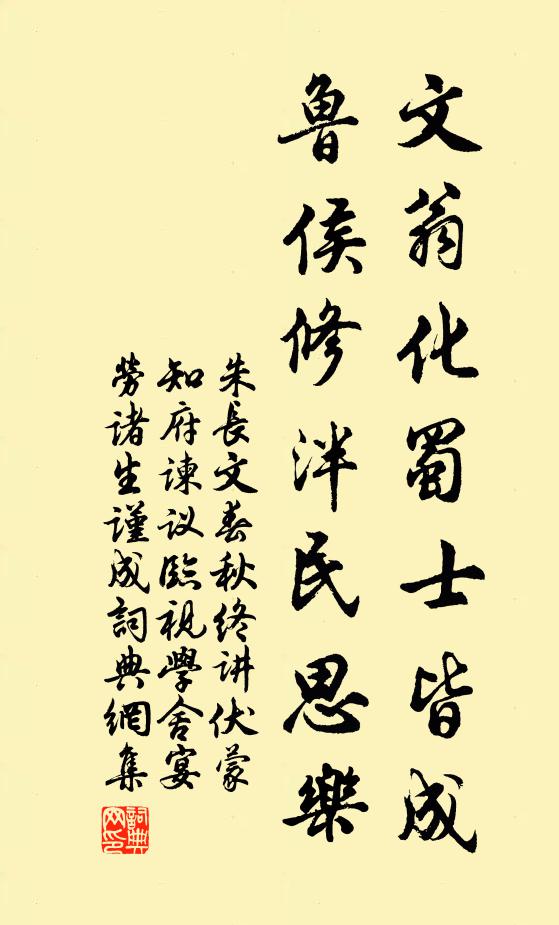 文翁化蜀士皆成
魯侯修泮民思樂
朱長文春秋终讲伏蒙
知府谏议臨視學舍宴
劳诸生謹成詞典網集
詞典网印